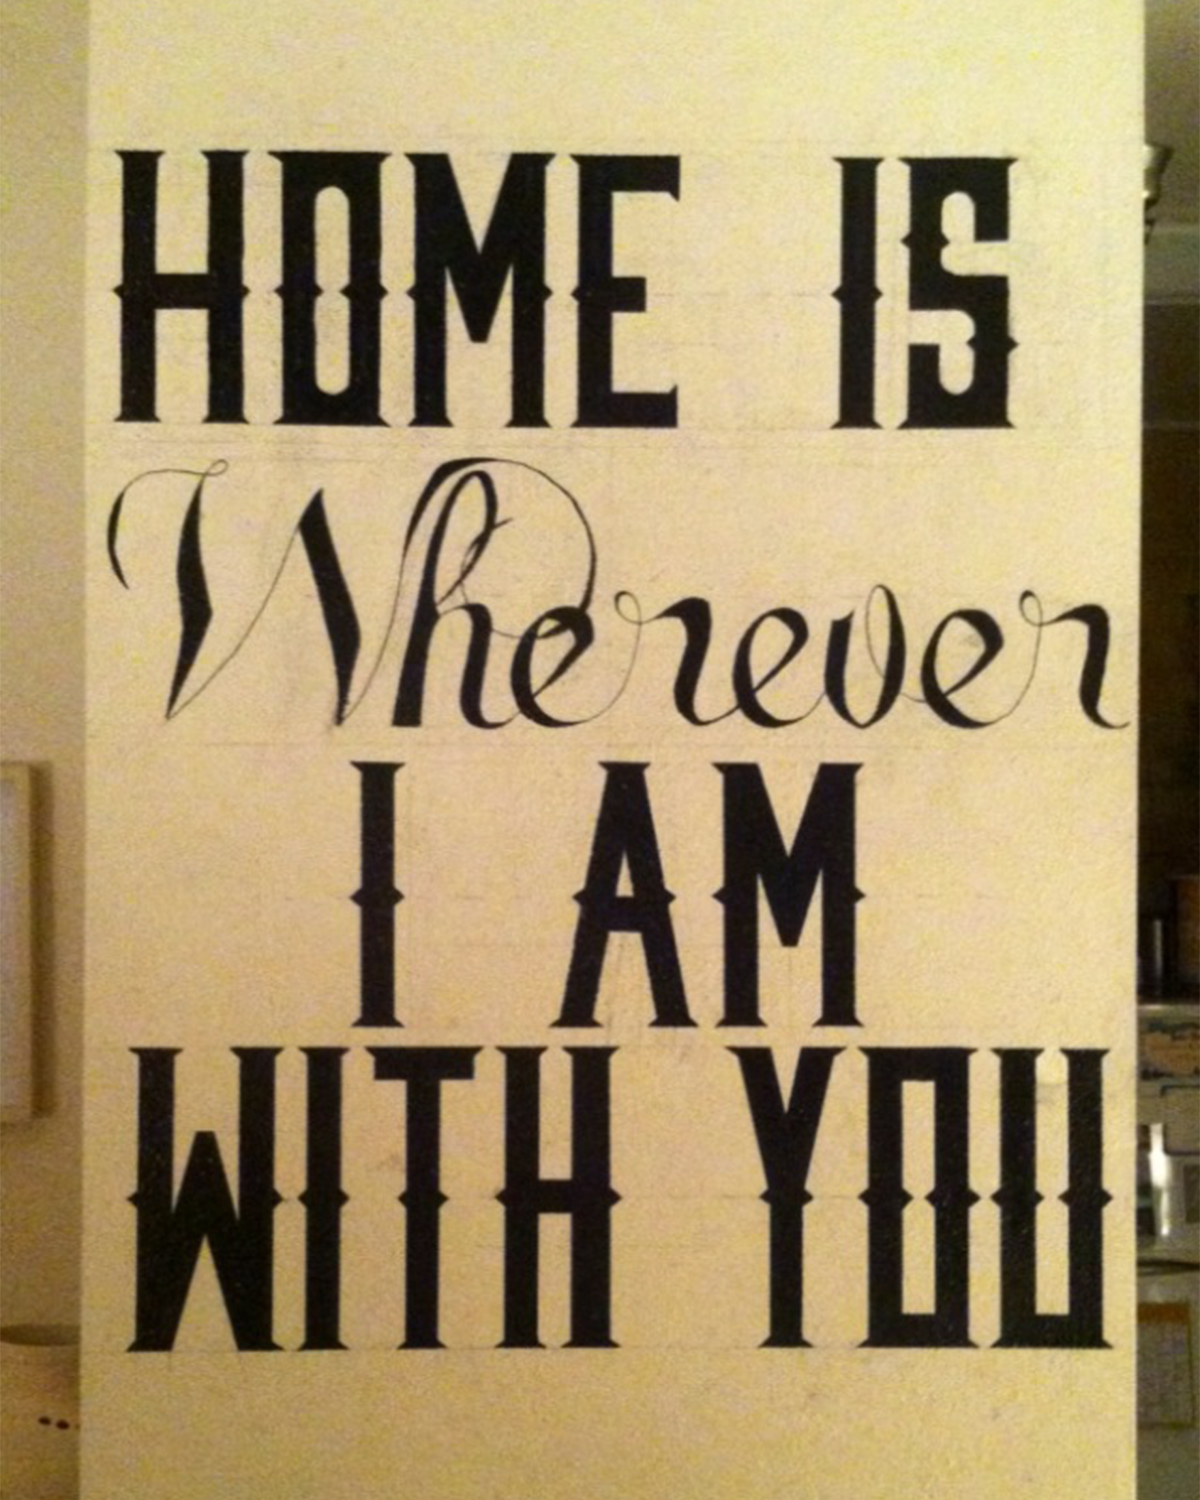 HOME IS
Wherever
I AM
WITH YOU